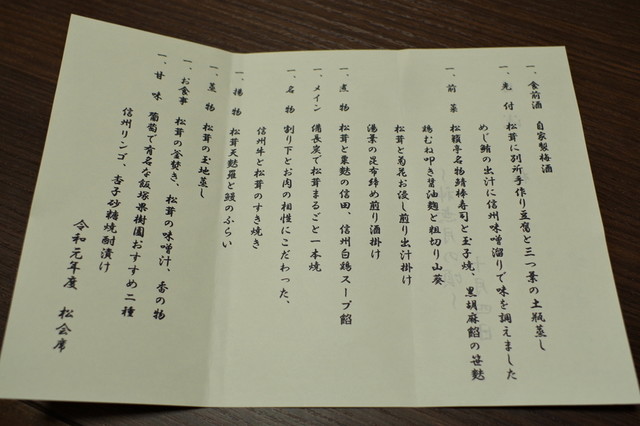 一、食前酒 自家製梅酒
一、先付 松茸に別所手作り豆腐と三つ葉の土瓶蒸し
めじ鮪の出汁に信州味噌溜りで味を調えました
一、前菜 松籟亭名物鯖棒寿司と玉子焼、黒胡麻餡の笹麩
鶏むね叩き醤油麹と粗切り山葵
松茸と菊花お浸し煎り出汁掛け
湯葉の昆布締め煎り酒掛け
一、煮物 松茸と粟麩の信田、信州白鶏スープ餡
一、メイン 備長炭で松茸まるごと一本焼
一、名物 割り下とお肉の相性にこだわった、
信州牛と松茸のすき焼き
一、揚物 松茸天麩羅と鰻のふらい
一、蒸物 松茸の玉地蒸し
一、お食事 松茸の釜焚き、松茸の味噌汁、香の物
一、甘味 葡萄で有名な飯塚果樹園おすすめ二種
信州リンゴ、杏子砂糖焼酎漬け
令和元年度 松会席